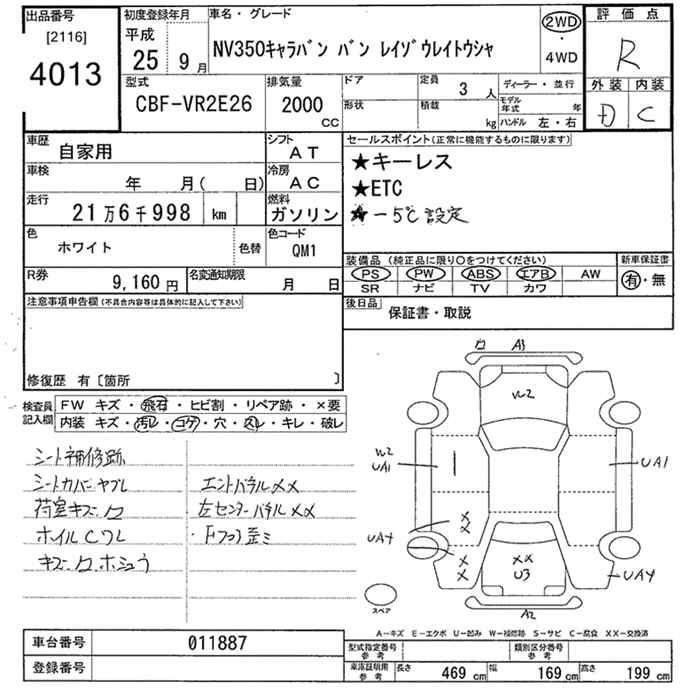 出品番号
[2116]
4013
初度登録年月
平成
25 9月
車名・グレード
NV350キャラバン バン レイゾウレイトウシャ
2WD
・
4WD
評価点
R
外装 内装
D C
型式
CBF-VR2E26
排気量
2000
CC
ドア
形状
定員
3人
積載
kg
ディーラー・並行
モデル年式 年
ハンドル 左・右
車歴
自家用
シフト
AT
車検
年 月( 日)
冷房
AC
走行
21万6千998 km
燃料
ガソリン
色
ホワイト
色替
色コード
QM1
R券
9,160円
名変通知期限
月 日
セールスポイント(正常に機能するものに限ります)
★キーレス
★ETC
★-5℃設定
装備品(純正品に限り○をつけてください)
PS PW ABS エアB AW
SR ナビ TV カワ
新車保証書
有・無
後日品
保証書・取説
注意事項申告欄(不具合内容等は具体的に記入して下さい)
修復歴 有〔箇所 〕
検査員記入欄
FW キズ・飛石・ヒビ割・リペア跡・×要
内装 キズ・汚レ・コゲ・穴・スレ・キレ・破レ
シート補修跡
シートカバーヤブレ
荷室キズ
ホイルCワレ
キズ
エンドパネルXX
左センターパネルXX
歪ミ
A3
W2
W2
UA1
UA1
UA4
XX
XX
XX
U3
UA4
A2
スペア
A-キズ E-エクボ U-凹み W-補修跡 S-サビ C-腐食 XX-交換済
車台番号
011887
登録番号
型式指定番号
参考
類別区分番号
参考
車庫証明用
参考
長さ 469cm 幅 169cm 高さ 199cm